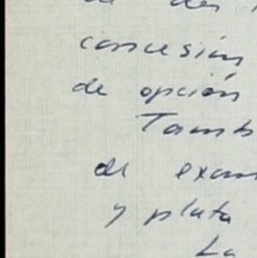 de des
concesión
de opción
Tamb
de exam
y plata
La